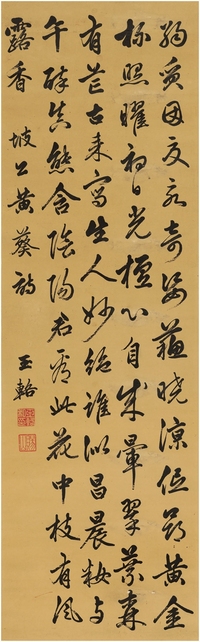 弱質困夏永奇姿蘇曉涼低昂黃金
杯照曜初日光檀心自成暈翠葉森
有芒古來寫生人妙絕誰似昌晨粧與
午醉真態含陰陽君看此花中枝有風
露香 坡公黃葵詩 王